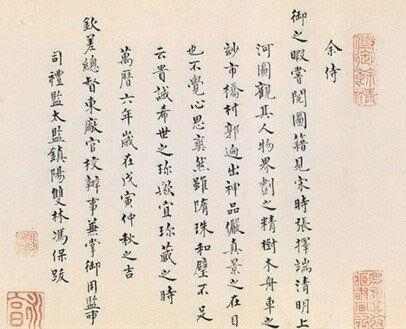 余侍
御之暇嘗閱圖籍見宋時張擇端清明上
河圖觀其人物界劃之精樹木舟車之
妙市橋村郭迥出神品儼真景之在目
也不覺心思爽然雖隋珠和璧不足
云貴誠希世之珎歟宜珎藏之時
萬曆六年歲在戊寅仲秋之吉
欽差總督東廠官校辦事兼掌御用監事
司禮監太監鎮陽雙林馮保跋